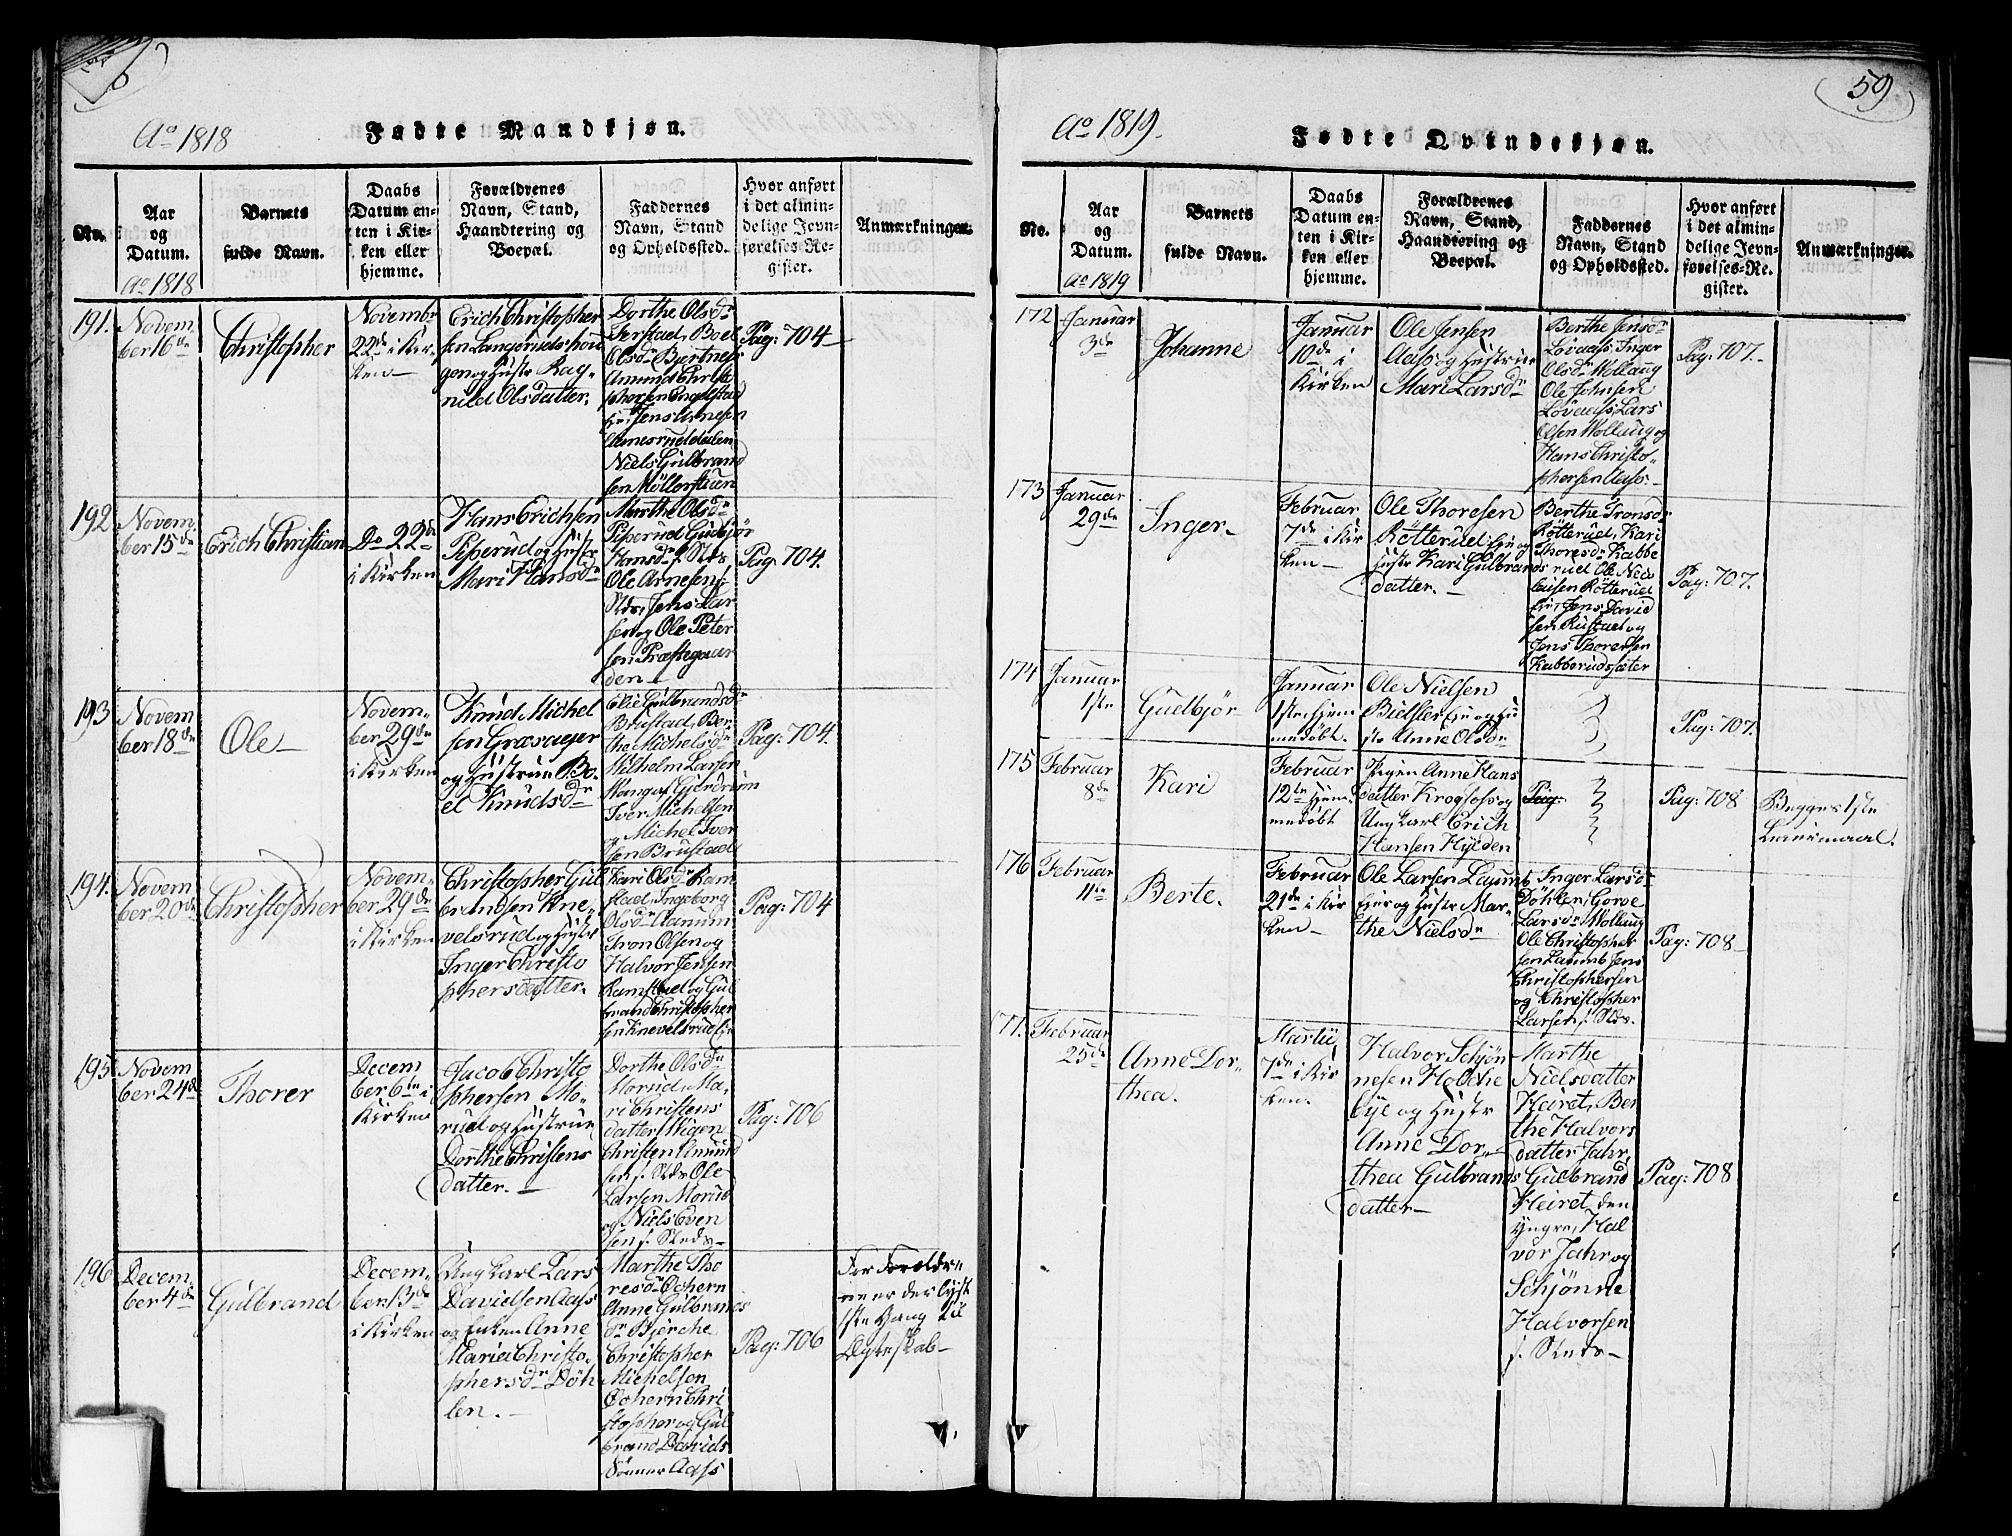 Ao 1818
Fødte Mandkjøn.
No.
Aar
og
Datum.
Ao 1818
Barnets
fulde Navn.
Daabs
Datum en-
ten i Kir-
ken eller
hjemme.
Forældrenes
Navn, Stand,
Haandtering og
Boepæl.
Faddernes
Navn, Stand
og Opholdssted.
Hvor anført
i det almin-
delige Jevn-
førelses-Re-
gister.
Anmærkninger.
191.
Novem
ber 16de
Christopher
Novembr
22de i Kir-
ken
Erich Christopher
sen Langerudsspou
gen og Hustr Rag-
nild Olsdatter.
Dorthe Olsdr
Boel
Olsdr Bjertness
Amund Christo
phersen Engelstad
Jens Arnesen
Arnesruddalen
Niels Gulbrand
sen Møllerstuen
Pag: 704
192
Novem
ber 15de
Erich Christian
Do 22de
i Kirken
Hans Erichsen
Pisserud og Hustr
Mari Hansdr
Marthe Olsdr
Pisserud Gudbjør
Hansdr f. Steds
Ole Arnesen
Steds, Jens Lar
sen og Ole Peter
sen Præstegaar
den
Pag: 704.
193
Novem
ber 18de
Ole
Novem-
ber 29de
i Kirken
Knud Michel
sen Græsager
og Hustrue Bo-
el Knudsdr
Elie Gulbrandsdr
Brustad Ber
the Michelsdr
Wilhelm Larsen
Iver Michelsen
og Michel Iver
sen Brustad
Pag: 704.
194.
Novem
ber 20de
Christopher
Novem-
ber 29de
i Kirken
Christopher Gul
brandsen Kne-
velsrud og Hustr
Inger Christo
phersdatter.
Kari Olsdr Ram
stad, Ingeborg
Olsdr Aanum
Tron Olsen og
Halvor Jensen
Ramstad og Gul
brand Christopher
sen Knevelsrud Eie
Pag: 704
195
Novem
ber 24de
Thorer
Decem
ber 6te i
Kirken
Jacob Christo
phersen Mo-
rud og Hustrue
Dorthe Christens
datter.
Dorthe Olsdr
Morud, Ma-
ri Christens
datter Pigen
Christen Amund
sen f. Steds Ole
Larsen Morud
og Niels Even
sen f. Steds
Pag: 706
196
Decem-
ber 4de
Gulbrand
Decem-
ber 13de
i Kirken
Ung Karl Lars
Davidsen Aass
og Enken Anne
Maria Christo-
phersdr Døh-
len.
Marthe Tho
resdr Ochern
Anne Gulbrands
dr Bjerche
Christopher
Michelsen
Ochern Chri
stopher og Gul
brand Davids
Sønner Aass
Pag: 706
For Forældre
ne er der lyst
1ste Gang til
Ægteskab
59
Ao 1819.
Fødte Qvindekjøn.
No.
Aar
og
Datum.
Ao 1819
Barnets
fulde Navn.
Daabs
Datum en-
ten i Kir-
ken eller
hjemme.
Forældrenes
Navn, Stand,
Haandtering og
Boepæl.
Faddernes
Navn, Stand
og Opholdssted.
Hvor anført
i det almin-
delige Jevn-
førelses-Re-
gister.
Anmærkninger.
172
Januar
3de
Johanne
Januar
10de i
Kirken
Ole Jensen
Aass og Hustrue
Mari Larsdr
Berthe Jensdr
Lovaass Inger
Olsdr Mollaug
Ole Johnsen
Lovaass, Lars
Olsen Mollaug og
Hans Christo-
phersen Aass.
Pag: 707.
173
Januar
29de
Inger
Februar
7de i Kir
ken
Ole Thoresen
Røtterud Eie og
Hustr Kari Gulbrands
datter.
Berthe Tronsdr
Røtterud, Kari
Thoresdr Kabbe
rud Ole
Røtterud
Eie, Jens David
sen Rustad og
Jens Thoresen
Kabberudsæter
Pag: 707.
174
Januar
1ste
Guelbjør
Januar
1ste Hjem
medøbt.
Ole Nielsen
Bielsler Eje og Hu
str Anne Olsdr
Pag: 707.
175
Februar
8de
Kari
Februar
12te Hjem
medøbt
Pigen Anne Hans
datter Krogfoss og
Ung Karl Erich
Hansen Hylden
Pag:
Pag: 708
Begges 1ste
Leiermaal.
176
Februar
11te
Berte.
Februar
21de i Kir
ken
Ole Larsen Laumb
Ejer og Hustr Mar-
the Nielsdr
Inger Larsdr
Døhlen, Gorve
Larsdr Mollaug
Ole Christopher
sen Laumb Jens
Christophersen
og Christopher
Larsen f. Steds.
Pag: 708
177.
Februar
25de
Anne Dor-
thea.
Martii
7de i Kir
ken.
Halvor Schjøn
nesen Holsche
bye og Hustr
Anne Dor-
thea Gulbrands
datter
Marthe
Nielsdatter
Heiret, Ber
the Halvors
datter Jahr,
Gulbrand
Heiret, den
yngre, Hal
vor Jahr og
Schjønne
Halvorsen
f. Steds
Pag: 708